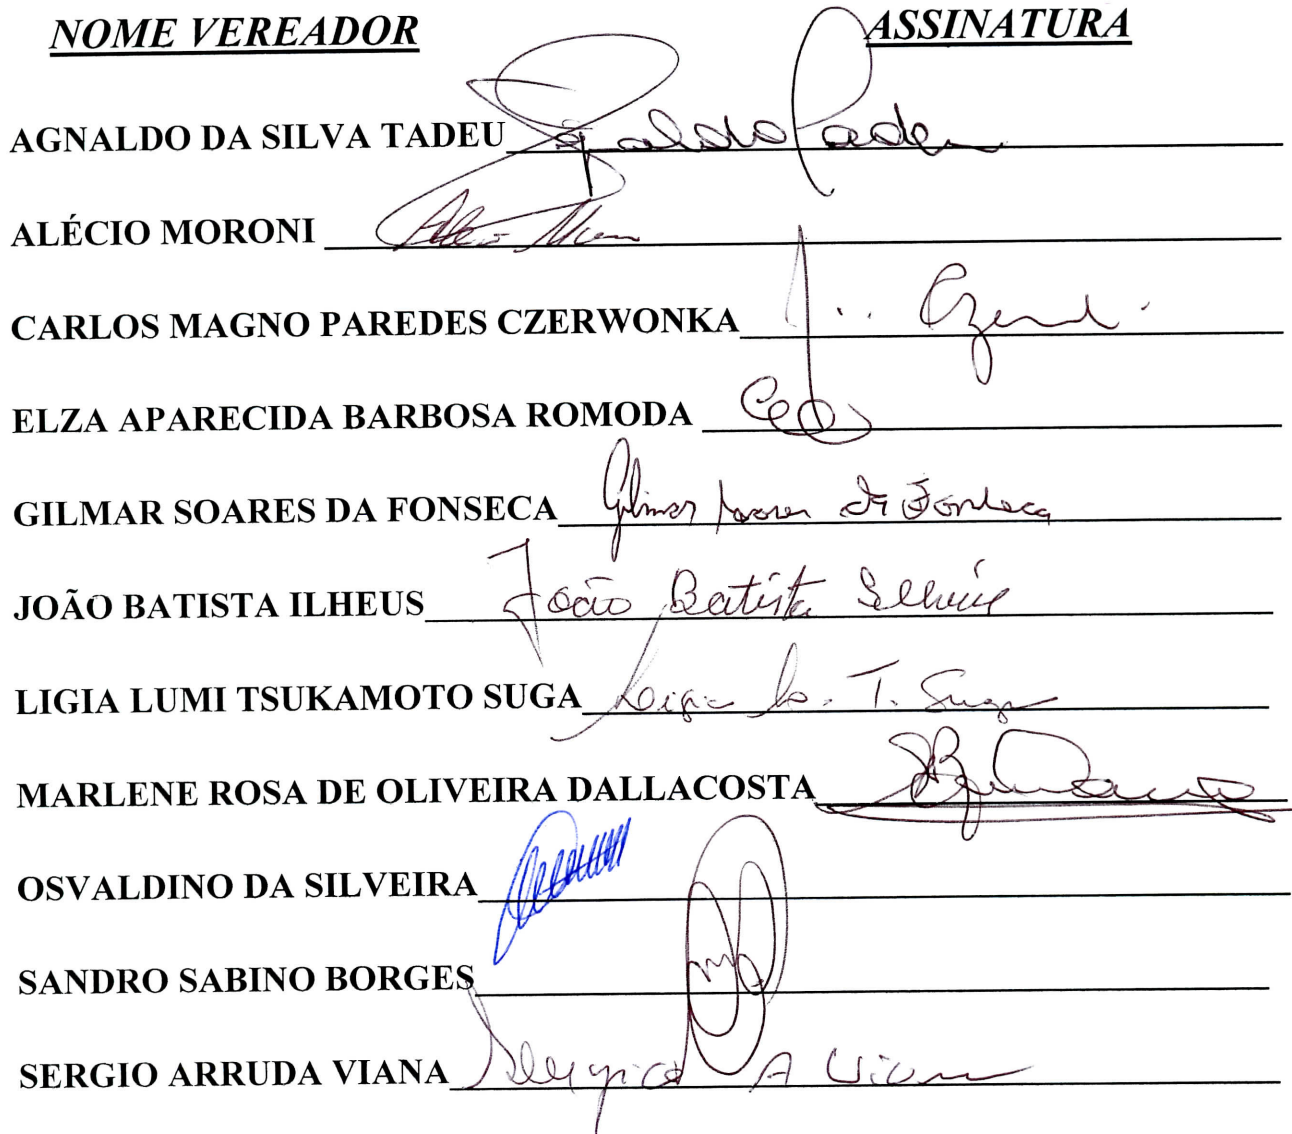 NOME VEREADOR ASSINATURA
AGNALDO DA SILVA TADEU
ALÉCIO MORONI
CARLOS MAGNO PAREDES CZERWONKA
ELZA APARECIDA BARBOSA ROMODA
GILMAR SOARES DA FONSECA Gilmar Soares da Fonseca
JOÃO BATISTA ILHEUS João Batista Ilheus
LIGIA LUMI TSUKAMOTO SUGA Ligia L. T. Suga
MARLENE ROSA DE OLIVEIRA DALLACOSTA
OSVALDINO DA SILVEIRA
SANDRO SABINO BORGES
SERGIO ARRUDA VIANA Sergio A Viana